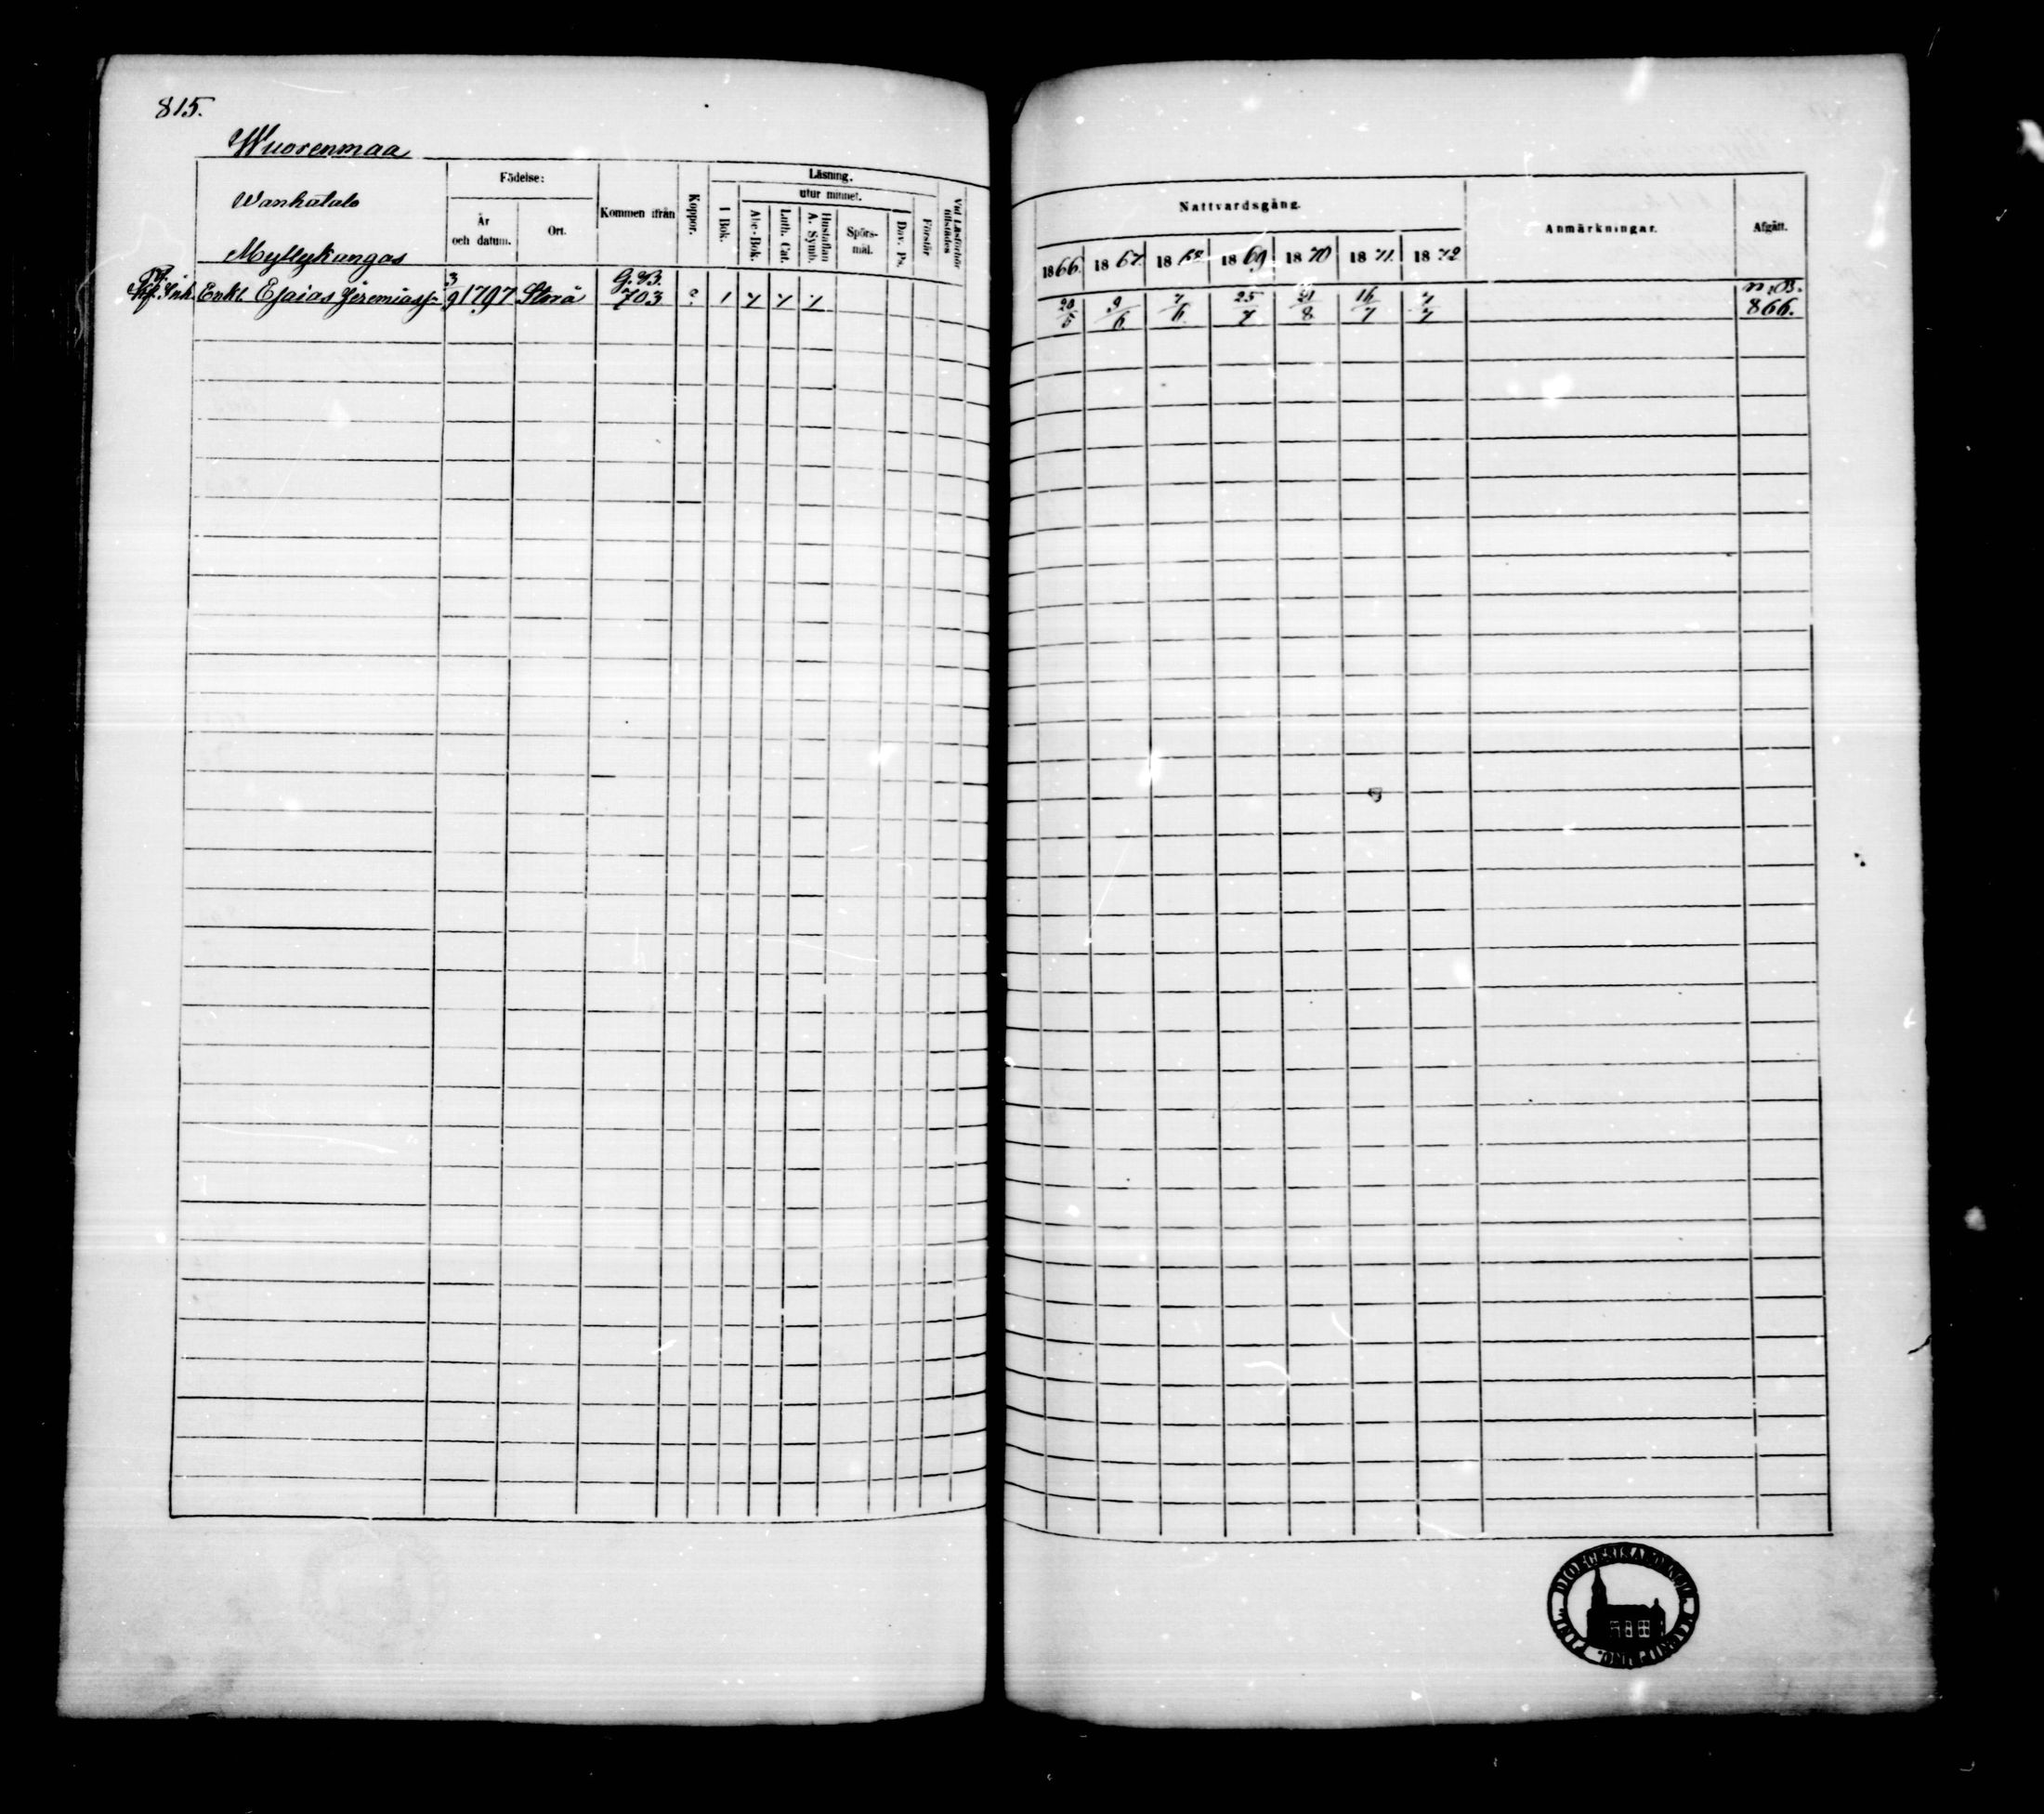 815.
Wuorenmaa
Wankatalo
Myllykangas
Födelse:
År och datum.
Ort.
Kommen ifrån
Koppor.
Läsning.
I Bok.
utur minnet.
Abc-Bok.
Luth. Cat.
Hustaflan A. Symb.
Spörsmål.
Dav. Ps.
Förstår
Vid Läsförhör tillstädes
Nattvardsgång.
1866. 1867. 1868 1869 1870 1871. 1872
Anmärkningar.
Afgått.
Inh. Enkl. Esaias Jeremiass:n 3/9 1797 Storå G.B. 703 ? 1 20/5 9/6 7/6 25/7 21/8 16/7 7/7 n.B. 866.